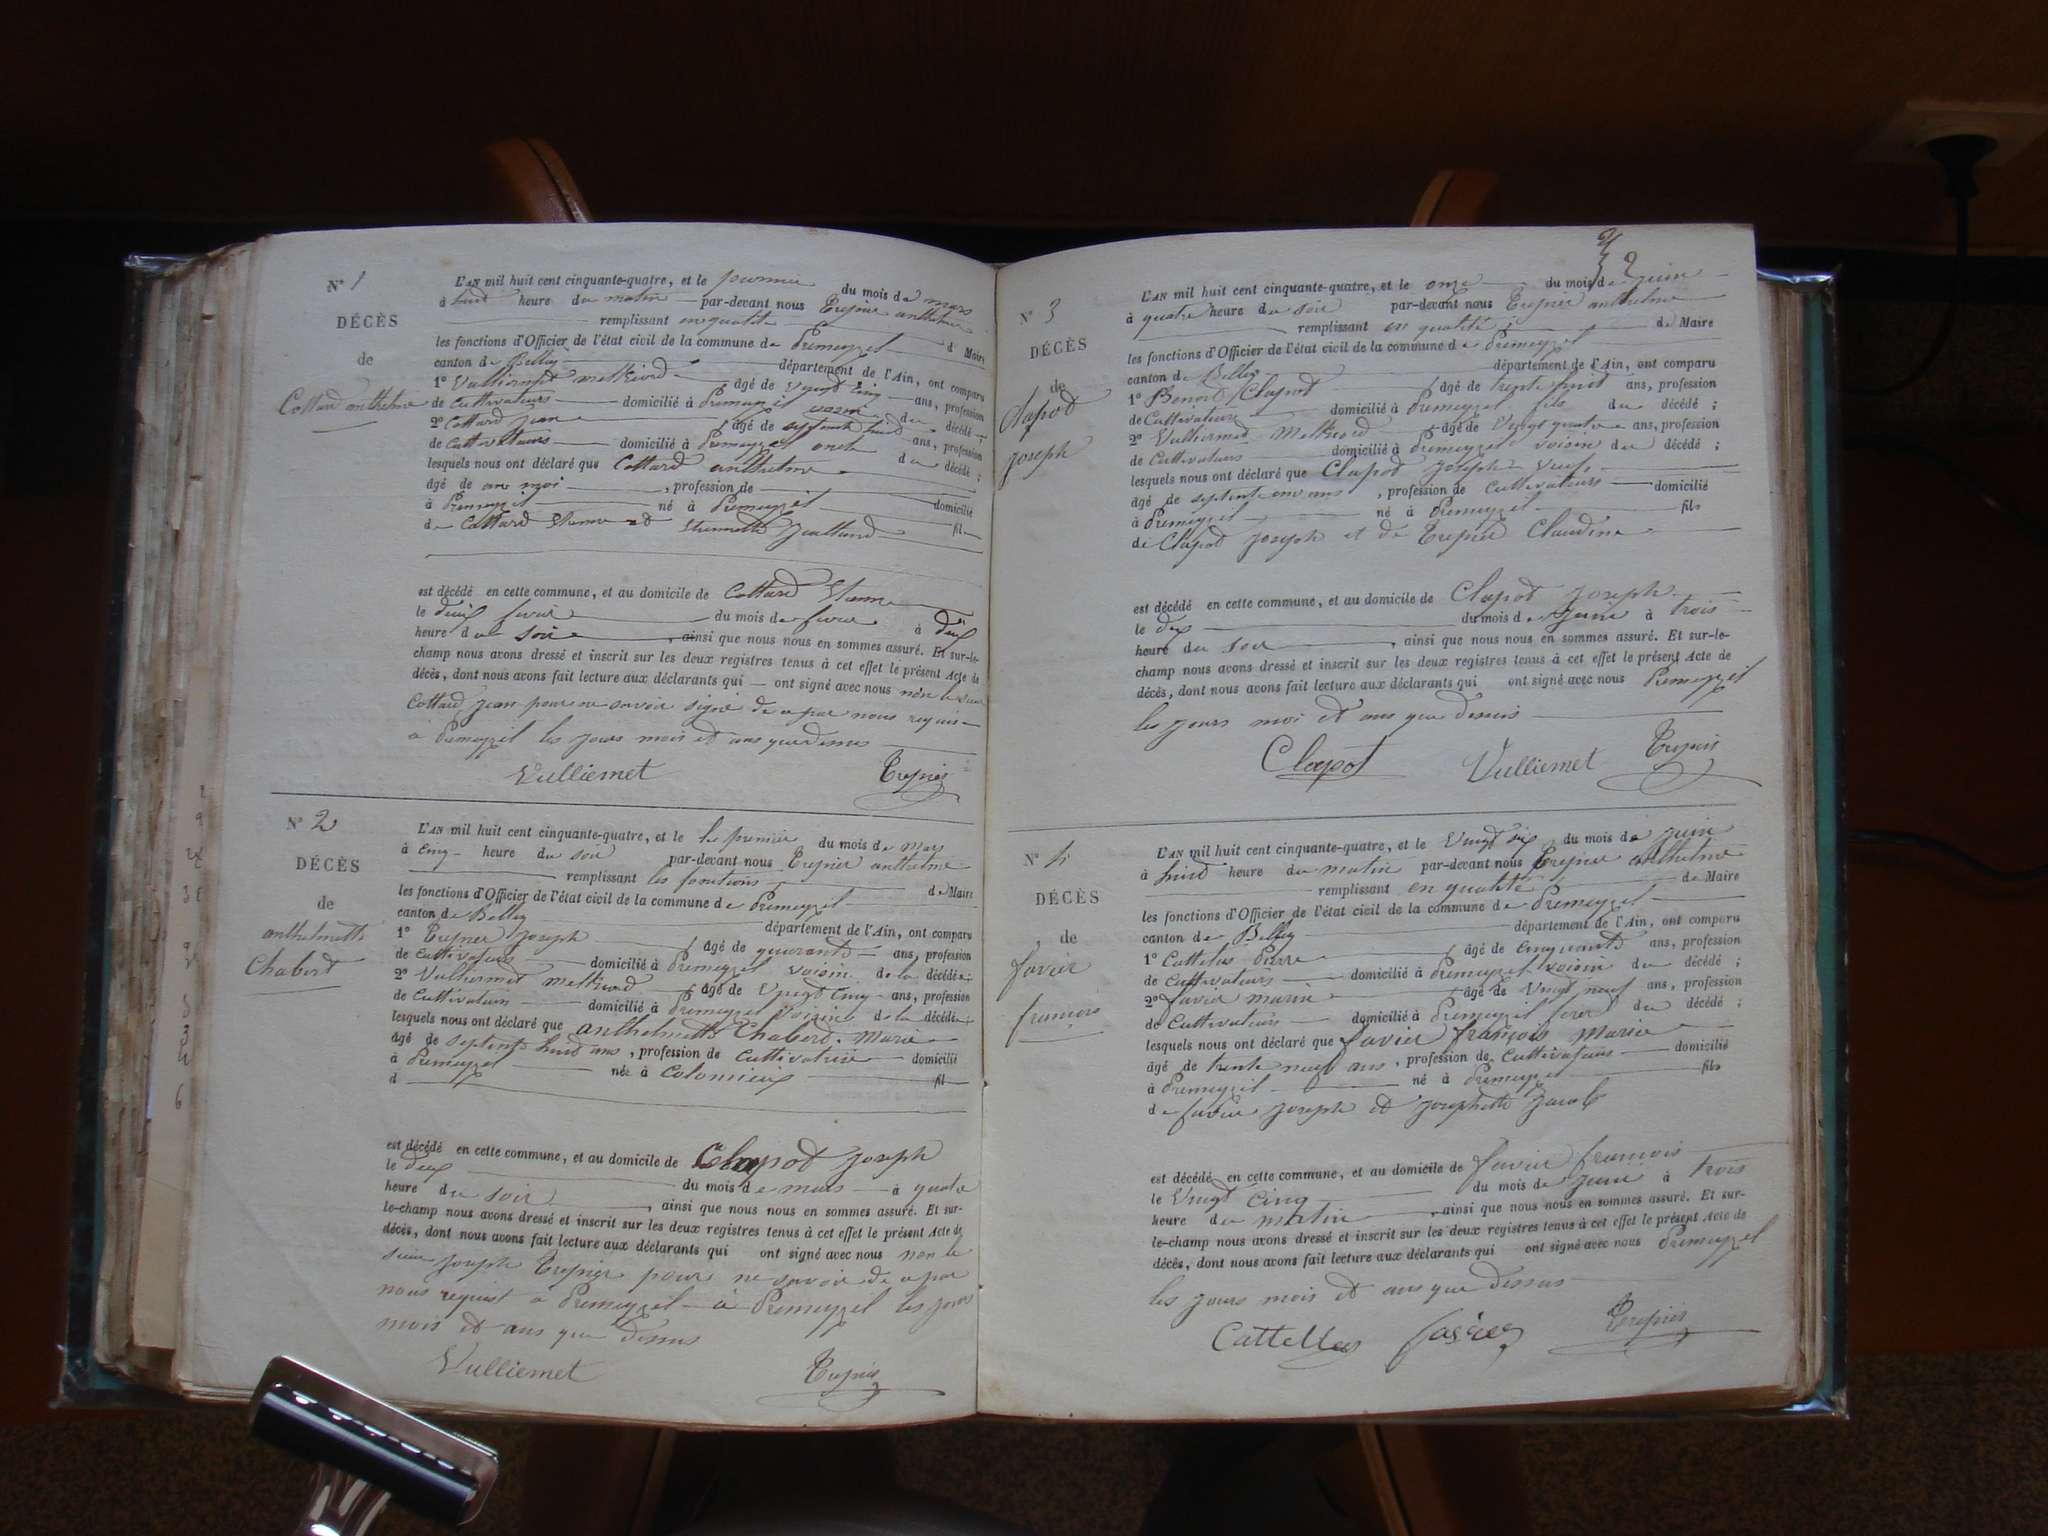 N° 1
DÉCÈS
de
Cottard anthelme
L'AN mil huit cent cinquante-quatre, et le premier du mois de mars
à huit heure du matin par-devant nous Trepier anthelme
remplissant en qualité
les fonctions d'Officier de l'état civil de la commune de Premeyzel d Maire
canton de Belley département de l'Ain, ont comparu
1° Vulliermet melkiord âgé de vingt cinq ans, profession
de Cultivateurs domicilié à Premeyzel voisin du décédé ;
2° Cottard jean âgé de septente huit ans, profession
de Cultivateurs domicilié à Premeyzel oncle du décédé ;
lesquels nous ont déclaré que Cottard anthelme
âgé de un moi , profession de domicilié
à Premeyzel né à Premeyzel fil
de Cottard et
est décédé en cette commune, et au domicile de Cottard
le du mois de à deux
heure du soir , ainsi que nous nous en sommes assuré. Et sur-le-
champ nous avons dressé et inscrit sur les deux registres tenus à cet effet le présent Acte de
décès, dont nous avons fait lecture aux déclarants qui ont signé avec nous non le
Cottard jean pour ne savoir signé de a par nous requis
à Premeyzel les jours mois et ans que dessus
Vulliemet Trepier
N° 2
DÉCÈS
de
anthelmette
Chabert
L'AN mil huit cent cinquante-quatre, et le le premier du mois de mars
à cinq heure du soir par-devant nous Trepier anthelme
remplissant les fonctions de Maire
les fonctions d'Officier de l'état civil de la commune de Premeyzel
canton de Belley département de l'Ain, ont comparu
1° Trepier joseph âgé de quarante ans, profession
de cultivateurs domicilié à Premeyzel voisin de la décédée ;
2° Vulliermet melkiord âgé de vingt cinq ans, profession
de Cultivateurs domicilié à Premeyzel voisin de la décédée ;
lesquels nous ont déclaré que anthelmette Chaberd. Marie
âgé de septente huit ans , profession de Cultivatrice domicilié
à Premeyzel née à Colomieux fil
d
est décédé en cette commune, et au domicile de Clapot joseph
le deux du mois de mars à quatre
heure du soir , ainsi que nous nous en sommes assuré. Et sur-
le-champ nous avons dressé et inscrit sur les deux registres tenus à cet effet le présent Acte de
décès, dont nous avons fait lecture aux déclarants qui ont signé avec nous non le
joseph Trepier pour ne savoir de a par
nous requist a Premeyzel à Premeyzel les jours
mois et ans que dessus
Vulliemet Trepier
3 2
N° 3
DÉCÈS
de
Clapot
joseph
L'AN mil huit cent cinquante-quatre, et le onze du mois de juin
à quatre heure du soir par-devant nous Trepier anthelme
remplissant en qualité de Maire
les fonctions d'Officier de l'état civil de la commune de Premeyzel
canton de Belley département de l'Ain, ont comparu
1° Benoid Clapot âgé de trente huit ans, profession
de Cultivateurs domicilié à Premeyzel fils du décédé ;
2° Vulliermet Melkiord âgé de vingt quatre ans, profession
de Cultivateurs domicilié à Premeyzel voisin du décédé ;
lesquels nous ont déclaré que Clapot joseph veuf
âgé de septente ans , profession de Cultivateurs domicilié
à Premeyzel né à Premeyzel fils
de Clapot joseph et de Trepier Claudine
est décédé en cette commune, et au domicile de Clapot joseph
le dix du mois de juin à trois
heure du soir , ainsi que nous nous en sommes assuré. Et sur-le-
champ nous avons dressé et inscrit sur les deux registres tenus à cet effet le présent Acte de
décès, dont nous avons fait lecture aux déclarants qui ont signé avec nous Premeyzel
les jours moi et ans que dessus
Clapot Vulliemet Trepier
N° 4
DÉCÈS
de
favier
francois
L'AN mil huit cent cinquante-quatre, et le vingt six du mois de juin
à huit heure du matin par-devant nous Trepier anthelme
remplissant en qualité de Maire
les fonctions d'Officier de l'état civil de la commune de Premeyzel
canton de Belley département de l'Ain, ont comparu
1° Cattelas Pierre âgé de cinquante ans, profession
de Cultivateurs domicilié à Premeyzel voisin du décédé ;
2° favier marin âgé de vingt neuf ans, profession
de Cultivateurs domicilié à Premeyzel du décédé ;
lesquels nous ont déclaré que favier françois marie
âgé de trente neuf ans , profession de Cultivateurs domicilié
à Premeyzel né à Premeyzel fils
de favier joseph et josephette jacob
est décédé en cette commune, et au domicile de favier francois
le vingt cinq du mois de juin à trois
heure du matin , ainsi que nous nous en sommes assuré. Et sur-
le-champ nous avons dressé et inscrit sur les deux registres tenus à cet effet le présent Acte de
décès, dont nous avons fait lecture aux déclarants qui ont signé avec nous Premeyzel
les jours mois et ans que dessus
Cattellas favier Trepier